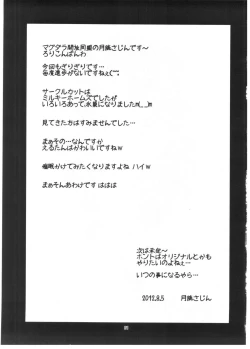 マグダラ開放同盟の月嶋さじんです～
ろりこんばんわ
今回もぎりぎりです…
毎度進歩がないですねぇ(^^;
サークルカットは
ミルキーホームズでしたが
いろいろあって、氷菓になりましたm(__)m
見てきた方はすみませんでした…
まぁその…なんですか
えるたんはかわいいですねｗ
催眠かけてみたくなりますよね ハイｗ
まぁそんあわけです ははは
次は未定～
ホントはオリジナルとかも
やりたいのよねぇ…
いつの事になるやら…
2012.8.5 月嶋さじん